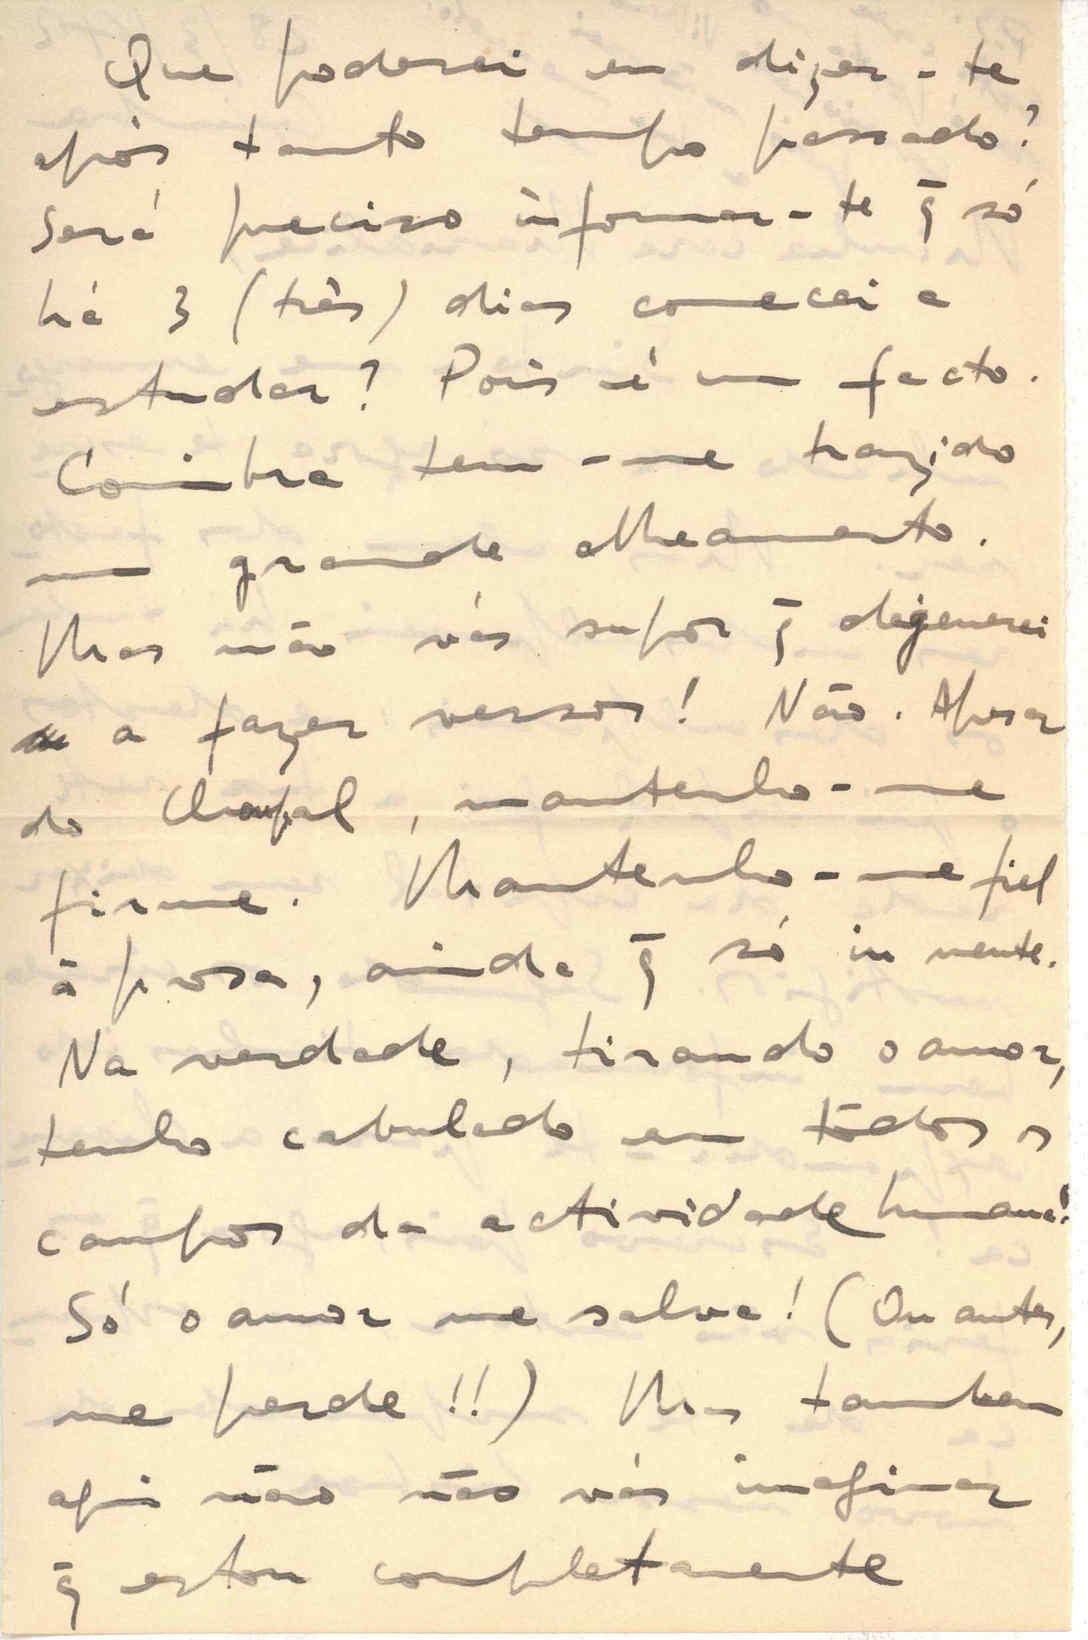 Que poderei eu dizer-te
após tanto tempo passado?
Será preciso informar-te q̄ só
há 3 (três) dias comecei a
estudar? Pois é um facto.
Coimbra tem-me trazido
um grande alheamento.
Mas não vás supor q̄ degenerei
a fazer versos! Não. Apesar
do Choupal, mantenho-me
firme. Mantenho-me fiel
à prosa, ainda q̄ só in mente.
Na verdade, tirando o amor,
tenho cabulado em todos os
campos da actividade humana!
Só o amor me salva! (Ou antes,
me perde!!) Mas tambem
aqui não não vás imaginar
q̄ estou completamente